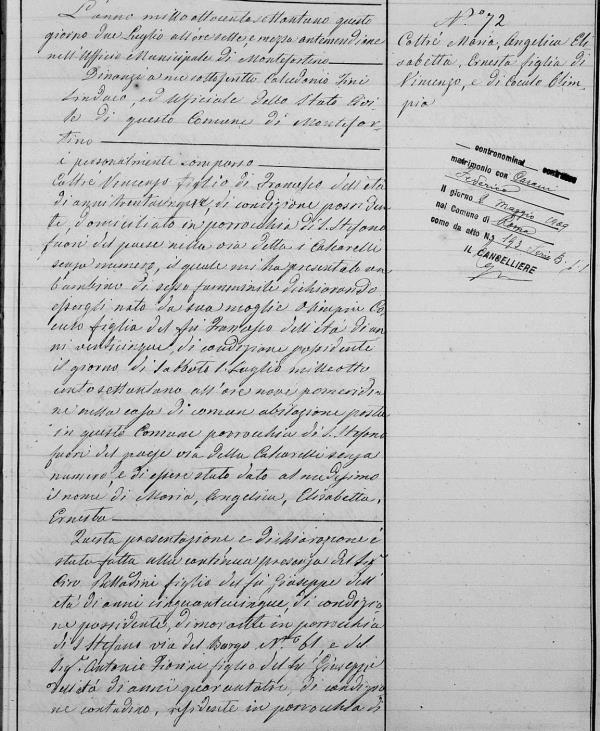 L'anno mille ottocento settantuno questo
giorno due Luglio all'ore sette, e mezza antemeridiane
nell'Uffizio Municipale di Montefortino
Dinanzi a me sottoscritto Calcedonio
Sindaco, ed Uffiziale dello Stato Civi
le di questo Comune di Montefor-
tino
è personalmente comparso
Cottré Vincenzo figlio di Francesco dell'età
di anni di condizione possiden
te, domiciliato in parrocchia di S. Stefano
fuori del paese nella via della Calcarelli
senza numero, il quale mi ha presentato un
bambino di sesso femminile dichiarando
essergli nato da sua moglie Olimpia Co
culo figlia del fu Francesco dell'età di an
ni venticinque, di condizione possidente
il giorno di Sabbato 1. Luglio mille otto
cento settantuno all'ore nove pomeridia
ne nella casa di comun abitazione posta
in questo Comune parrocchia di S. Stefano
fuori del paese via della Calcarelli senza
numero, e di essere stato dato al medesimo
il nome di Maria, Angelica, Elisabetta,
Ernesta
Questa presentazione e dichiarazione è
stata fatta alla continua presenza del Sigr.
Ciro Palladini figlio del fu Giuseppe dell'
età di anni cinquantacinque, di condizio
ne possidente, dimorante in parrocchia
di S. Stefano via del Borgo No. 61, e del
Sigr. Antonio Fiorini figlio del fu Giuseppe
dell'età di anni quarantatre, di condizio
ne contadino, residente in parrocchia di
No. 72
Cottré Maria, Angelica Eli
sabetta, Ernesta figlia di
Vincenzo, e di Coculo Olim-
pia
contronominat
matrimonio con
Federico
Il giorno 8 Maggio 1909
nel Comune di Roma
come da atto N. 193 Serie B. p. 1
IL CANCELLIERE